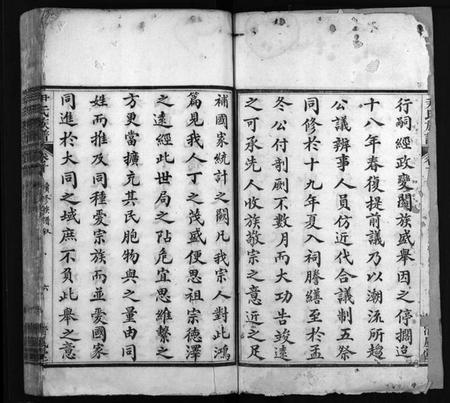 行嗣經政變闔族盛舉因之停擱迨
十八年春復提前議乃以潮流所趨
公議辦事人員仿近代合議制五祭
同修於十九年夏入祠謄繕至於孟
冬公付剞劂不數月而大功告竣遠
之可承先人收族敬宗之意近之足
補國家統計之闕凡我宗人對此鴻
篇見我人丁之茂盛便思祖宗德澤
之遠經此世局之阽危宜思維繫之
方更當擴充其民胞物與之量由同
姓而推及同種愛宗族而並愛國家
同進於大同之域庶不負此舉之意
尹氏族譜
六